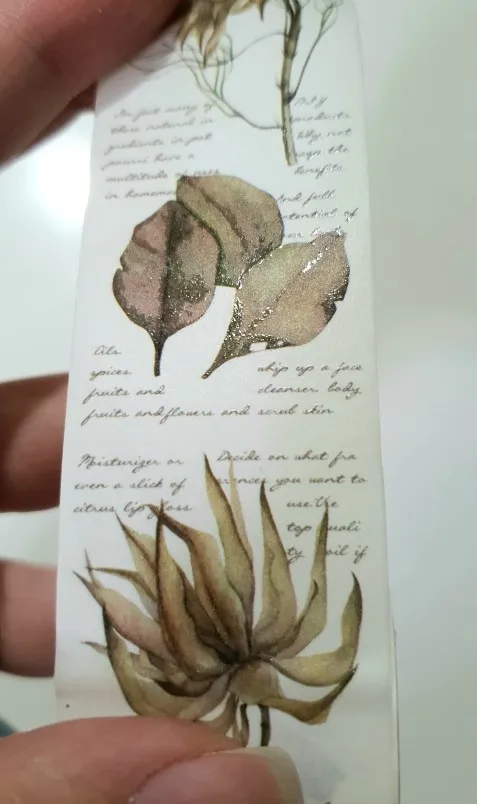 In fact many of
these natural in
gredients in pot
pourri have a
multitude of uses
in homemade
DIY
products
Why not
reap the
benefits
And full
potential of
Oils
spices
fruits and
fruits and flowers and
whip up a face
cleanser body
scrub skin
Moisturizer or
even a slick of
citrus lip gloss
Decide on what fra
grances you want to
use the
top quali
ty oil if